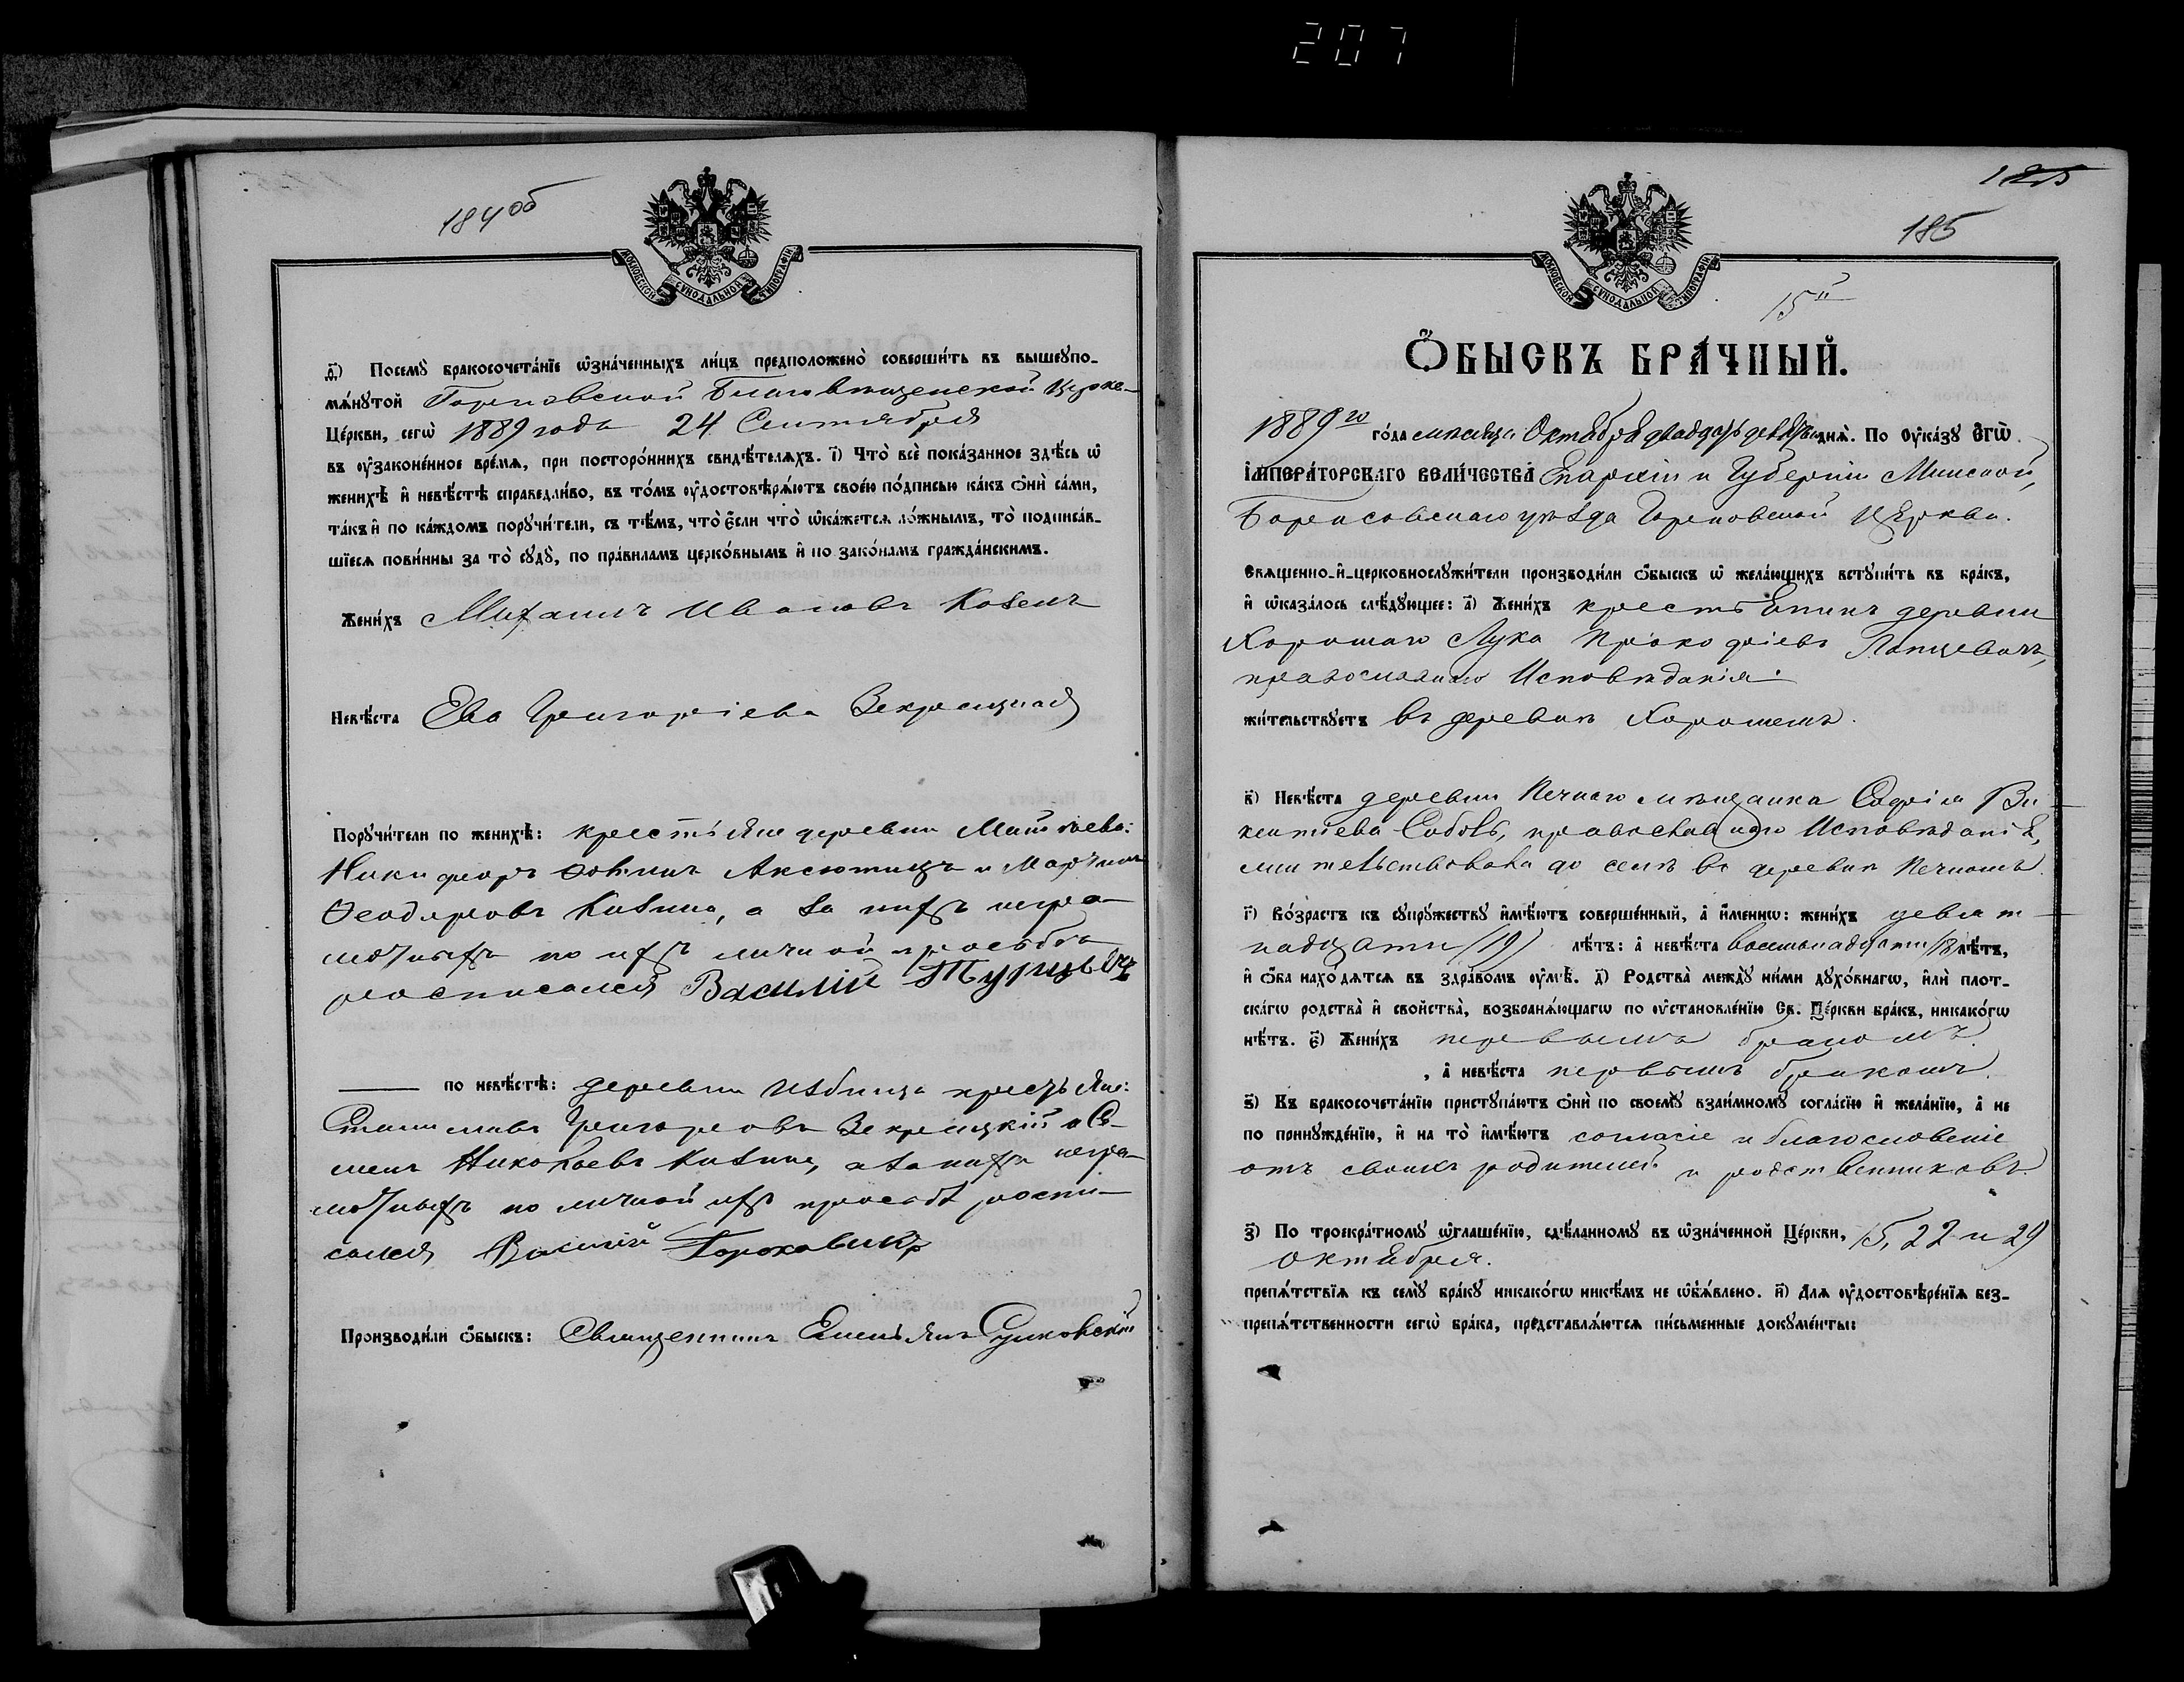 207
184 об
МОСКОВСКОЙ СѴНОДАЛЬНОЙ ТИПОГРАФІИ
д҃) Посемꙋ бракосочета́нїе ѡ҆зна́ченныхъ ли́цъ предположено̀ соверши́ть въ вышеꙋпо-
мѧ́нꙋтой Горковской Благовѣщенской Церкв
Це́ркви, сегѡ̀ 1889 года 24 Сентября
въ ᲂу҆законе́нное вре́мѧ, при посторо́ннихъ свидѣ́телѧхъ. і҃) Что̀ всѐ пока́занное здѣ́сь ѡ҆
женихѣ̀ и҆ невѣ́стѣ справедли́во, въ то́мъ ᲂу҆достовѣрѧ́ютъ свое́ю по́дписью ка́къ ѻ҆нѝ са́ми,
та́къ и҆ по ка́ждомъ порꙋчи́тели, съ тѣ́мъ, что̀ є҆́сли что̀ ѡ҆ка́жетсѧ ло́жнымъ, то̀ подписа́в-
шїесѧ пови́нны за то̀ сꙋдꙋ̀, по пра́виламъ церко́внымъ и҆ по зако́намъ гражда́нскимъ.
Жени́хъ Михаилъ Ивановъ Козелъ
Невѣ́ста Ева Григоріева Зекрецкая
Порꙋчи́тели по женихѣ̀: крестьяне деревни
Никифоръ Ѳоминъ Аксютицъ и Мартинъ
Ѳеодоровъ Кизино, а за нихъ негра-
мотныхъ по ихъ личной просьбѣ
росписался Василій Турцевичъ
по невѣ́стѣ: деревни Избища кресть яне:
Станиславъ Григоровъ Зекрецкій и Се-
менъ Николаевъ Кизино, а за нихъ негра-
мотныхъ по личной ихъ просьбѣ роспи-
сался Василій Гороховикъ
Производи́ли ѻ҆́быскъ: Священникъ Емельянъ Сулковскій
185
185
МОСКОВСКОЙ СѴНОДАЛЬНОЙ ТИПОГРАФІИ
15й
Ѻ҆БЫСКЪ БРА́ЧНЫЙ.
1889го го́да мѣсяца Октября двадцать девятаго днѧ̀. По ᲂу҆ка́зꙋ Є҆гѡ̀
І҆МПЕРА́ТОРСКАГО ВЕЛИ́ЧЕСТВА Епархіи и Губерніи Минской,
Борисовскаго уѣзда Горковской Церкви.
Свѧщенно-и҆-церковнослꙋжи́тели производи́ли ѻ҆́быскъ ѡ҆ жела́ющихъ встꙋпи́ть въ бра́къ,
и҆ ѡ҆каза́лось слѣ́дꙋющее: а҃) Жени́хъ крестьянинъ деревни
Хорошаго Лука Прокофіевъ Лапцевичъ,
православнаго Исповѣданія.
жи́тельствꙋетъ въ деревнѣ Хорошемъ.
в҃) Невѣ́ста деревни Печнаго мѣщанка Софія Ви-
кентіева Соболь, православнаго Исповѣданія,
жительствовала до селѣ въ деревнѣ Печномъ.
г҃) Во́зрастъ къ сꙋпрꙋ́жествꙋ и҆мѣ́ютъ соверше́нный, а҆ и҆́меннѡ: жени́хъ девят-
надцати (19) лѣ́тъ: а҆ невѣ́ста восемьнадцати (18) лѣ́тъ,
и҆ ѻ҆́ба нахо́дѧтсѧ въ здра́вомъ ᲂу҆мѣ̀. д҃) Родства̀ междꙋ̀ ни́ми дꙋхо́внагѡ, и҆лѝ плот-
ска́гѡ родства̀ и҆ сво́йства, возбранѧ́ющагѡ по ᲂу҆становле́нїю Св. Це́ркви бра́къ, никако́гѡ
нѣ́тъ. є҃) Жени́хъ первымъ бракомъ
, а҆ невѣ́ста первымъ бракомъ.
ѕ҃) Къ бракосочета́нїю пристꙋпа́ютъ ѻ҆нѝ по своемꙋ̀ взаи́мномꙋ согла́сїю и҆ жела́нїю, а҆ не
по принꙋжде́нїю, и҆ на то̀ и҆мѣ́ютъ согласіе и благословеніе
отъ своихъ родителей и родственниковъ.
з҃) По троекра́тномꙋ ѡ҆глаше́нїю, сдѣ́ланномꙋ въ ѡ҆зна́ченной Це́ркви, 15, 22 и 29
Октября.
препѧ́тствїѧ къ семꙋ̀ бра́кꙋ никако́гѡ никѣ́мъ не ѡ҆б̾ѧ́влено. и҃) Длѧ ᲂу҆достовѣре́нїѧ без-
препѧ́тственности сегѡ̀ бра́ка, представлѧ́ютсѧ пи́сьменные докꙋме́нты: